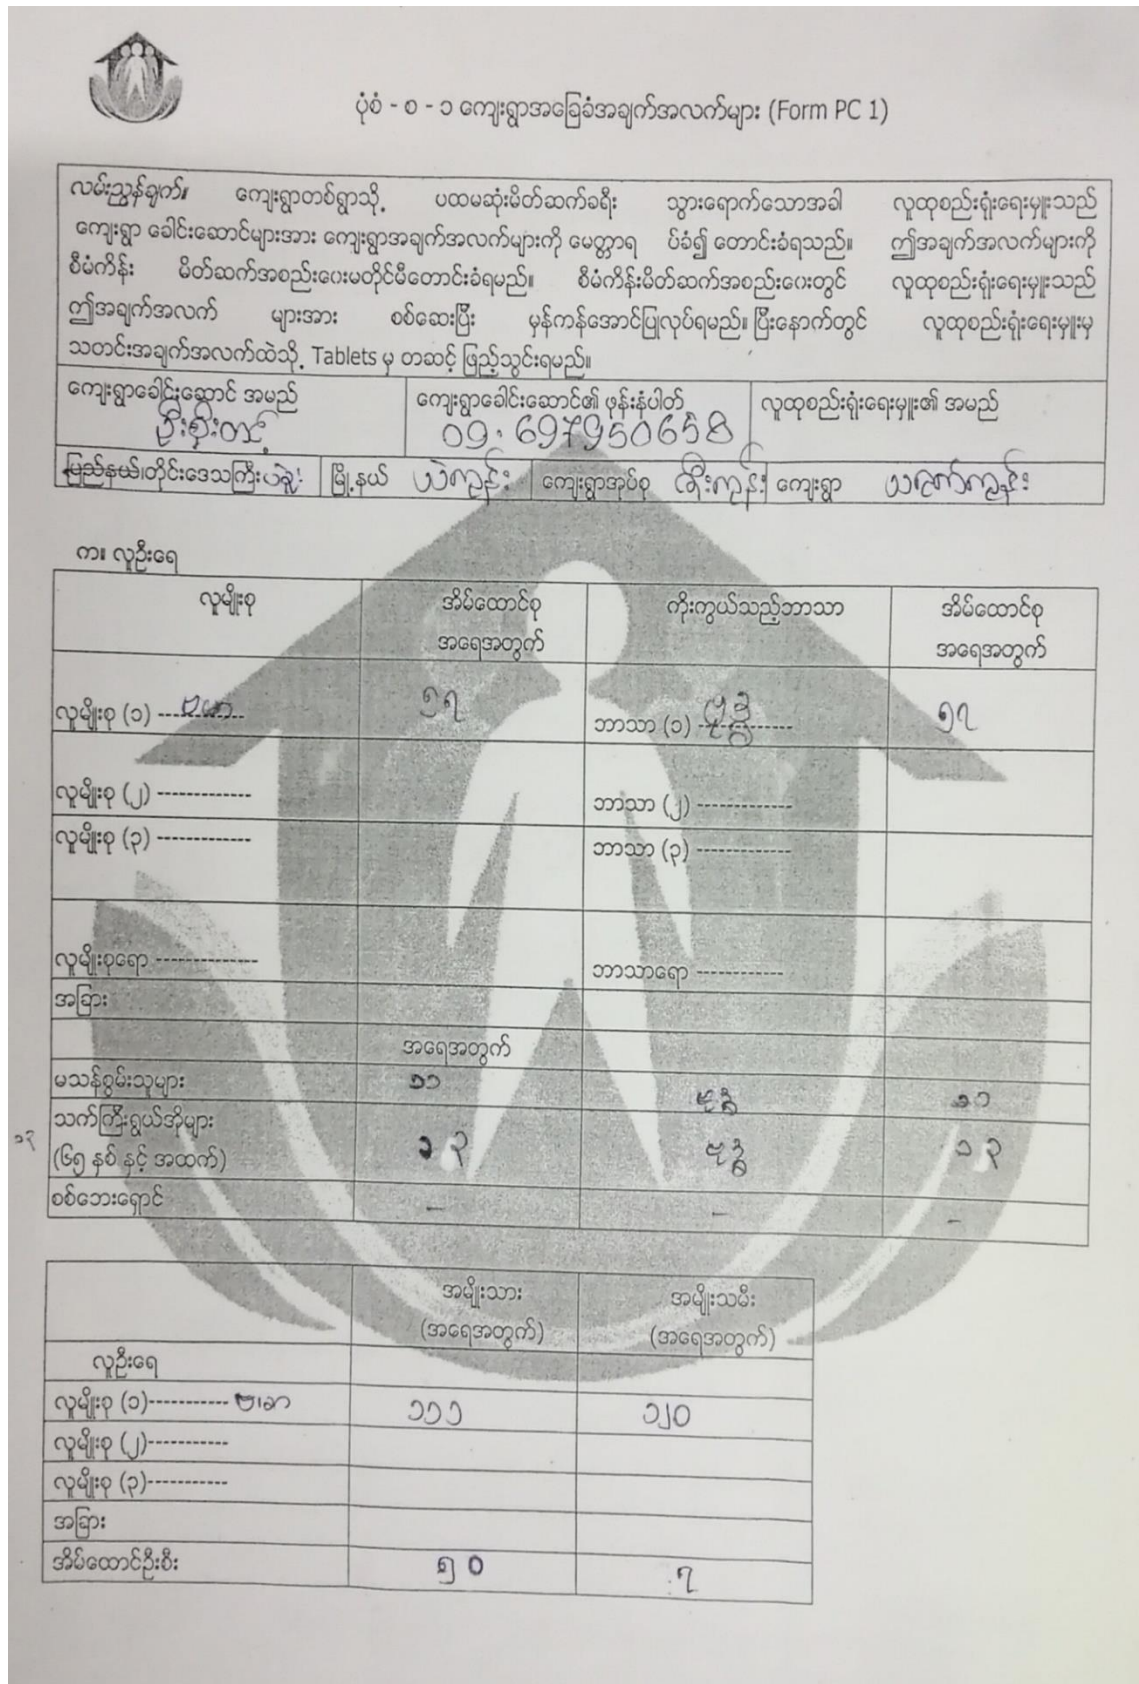 ပုံစံ - စ - ၁ ကျေးရွာအခြေခံအချက်အလက်များ (Form PC 1)
လမ်းညွှန်ချက်။ ကျေးရွာတစ်ရွာသို့ ပထမဆုံးမိတ်ဆက်ခရီး သွားရောက်သောအခါ လူထုစည်းရုံးရေးမှူးသည်
ကျေးရွာ ခေါင်းဆောင်များအား ကျေးရွာအချက်အလက်များကို မေတ္တာရ ပ်ခံ၍ တောင်းခံရသည်။ ဤအချက်အလက်များကို
စီမံကိန်း မိတ်ဆက်အစည်းဝေးမတိုင်မီတောင်းခံရမည်။ စီမံကိန်းမိတ်ဆက်အစည်းဝေးတွင် လူထုစည်းရုံးရေးမှူးသည်
ဤအချက်အလက် များအား စစ်ဆေးပြီး မှန်ကန်အောင်ပြုလုပ်ရမည်။ ပြီးနောက်တွင် လူထုစည်းရုံးရေးမှူးမှ
သတင်းအချက်အလက်ထဲသို့ Tablets မှ တဆင့် ဖြည့်သွင်းရမည်။
ကျေးရွာခေါင်းဆောင် အမည် ကျေးရွာခေါင်းဆောင်၏ ဖုန်းနံပါတ် လူထုစည်းရုံးရေးမှူး၏ အမည်
09.697950658
ပြည်နယ်၊တိုင်းဒေသကြီး ပဲခူး မြို့နယ် ကျေးရွာအုပ်စု ကျေးရွာ
က။ လူဦးရေ
လူမျိုးစု အိမ်ထောင်စု ကိုးကွယ်သည့်ဘာသာ အိမ်ထောင်စု
အရေအတွက် အရေအတွက်
လူမျိုးစု (၁) ------------- ဗမာ ၅၇ ဘာသာ (၁) ------------- ဗုဒ္ဓ ၅၇
လူမျိုးစု (၂) ------------- ဘာသာ (၂) -------------
လူမျိုးစု (၃) ------------- ဘာသာ (၃) -------------
လူမျိုးစုရော -------------- ဘာသာရော ------------
အခြား
အရေအတွက်
မသန်စွမ်းသူများ ၁၁ ဗုဒ္ဓ ၁၁
သက်ကြီးရွယ်အိုများ
၁၃ (၆၅ နှစ် နှင့် အထက်) ၁၃ ဗုဒ္ဓ ၁၃
စစ်ဘေးရှောင် - - -
အမျိုးသား အမျိုးသမီး
(အရေအတွက်) (အရေအတွက်)
လူဦးရေ
လူမျိုးစု (၁)----------- ဗမာ ၁၁၁ ၁၂၀
လူမျိုးစု (၂)-----------
လူမျိုးစု (၃)-----------
အခြား
အိမ်ထောင်ဦးစီး ၅၀ ၇